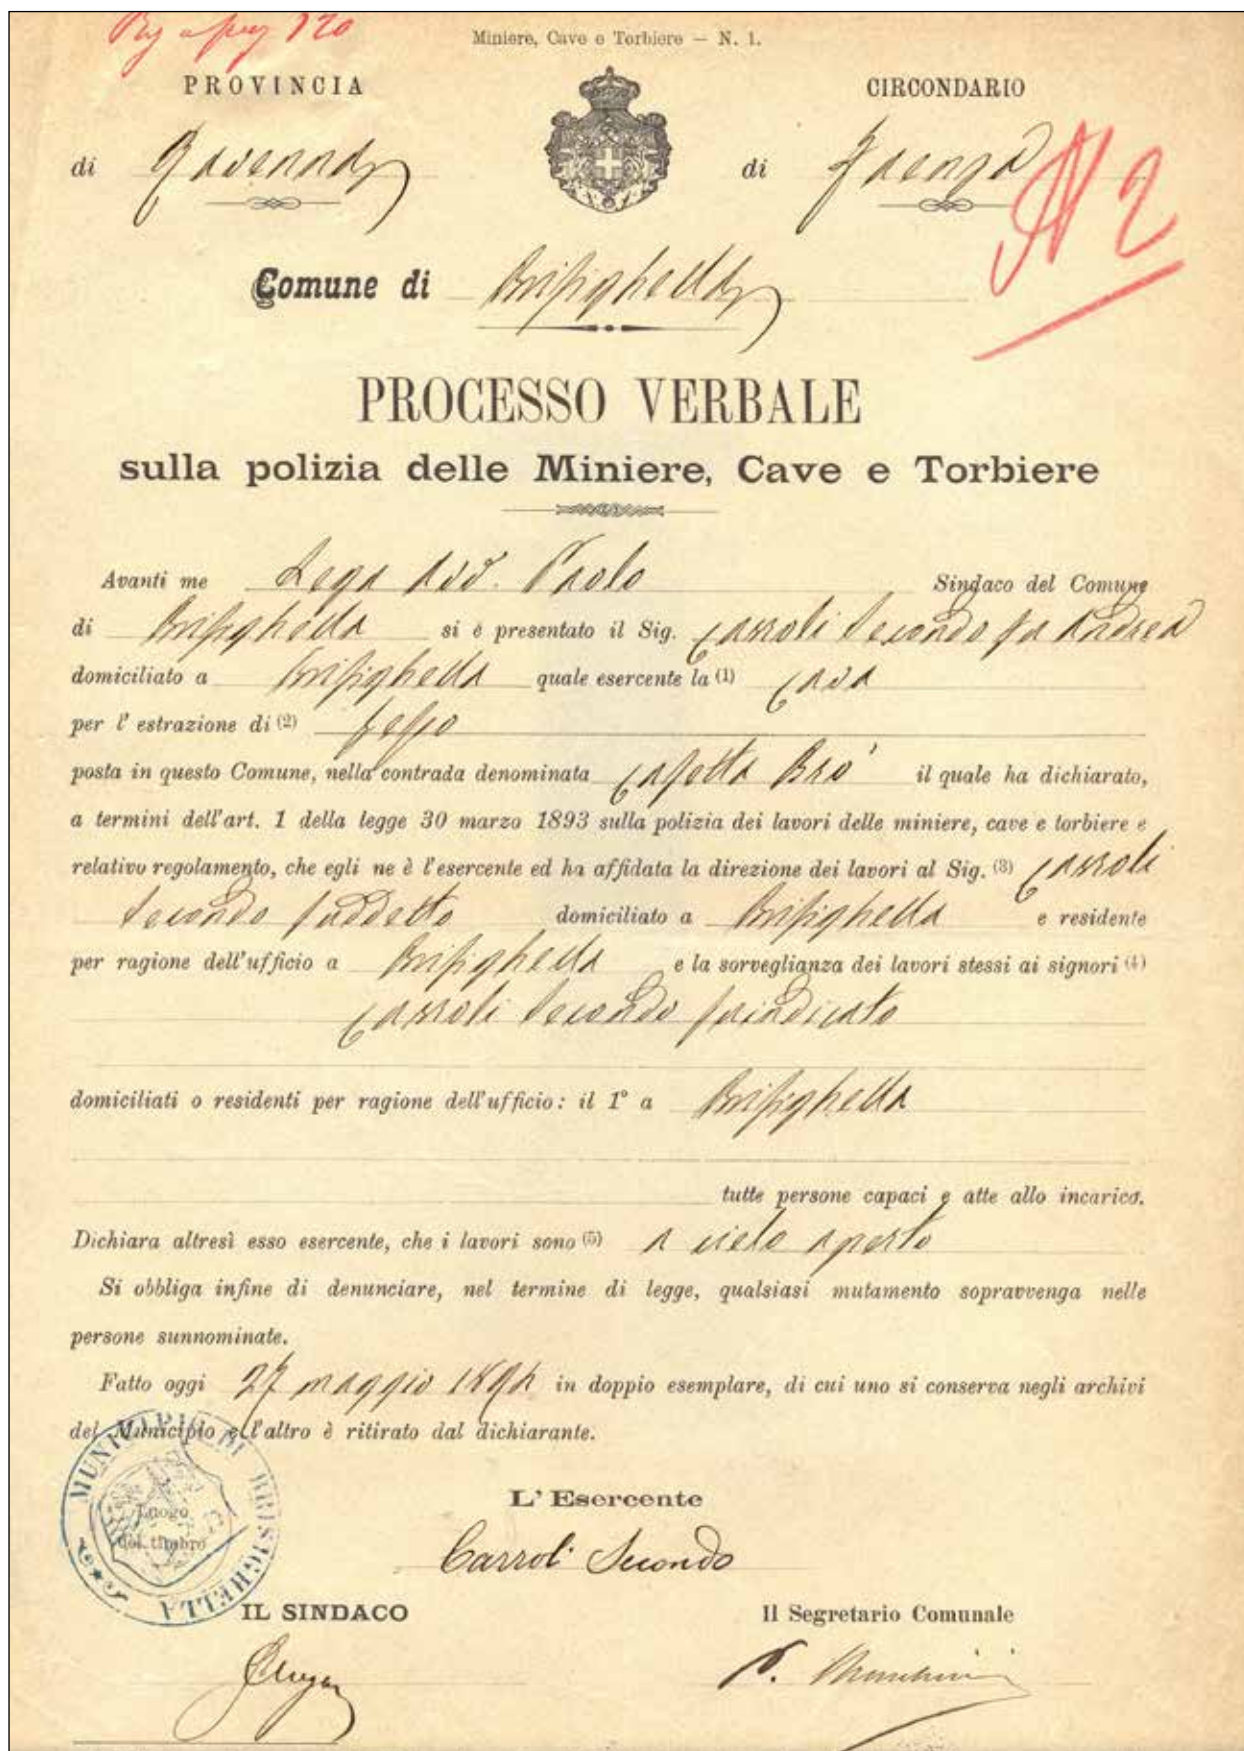 Miniere, Cave e Torbiere — N. 1.
PROVINCIA
CIRCONDARIO
di Ravenna
di Faenza
N 2
Comune di Brisighella
PROCESSO VERBALE
sulla polizia delle Miniere, Cave e Torbiere
Avanti me Lega Avv. Paolo Sindaco del Comune
di Brisighella si è presentato il Sig. Carroli Secondo fu Andrea
domiciliato a Brisighella quale esercente la (1) cava
per l' estrazione di (2) gesso
posta in questo Comune, nella contrada denominata Casetta Brò il quale ha dichiarato,
a termini dell'art. 1 della legge 30 marzo 1893 sulla polizia dei lavori delle miniere, cave e torbiere e
relativo regolamento, che egli ne è l'esercente ed ha affidata la direzione dei lavori al Sig. (3) Carroli
Secondo suddetto domiciliato a Brisighella e residente
per ragione dell'ufficio a Brisighella e la sorveglianza dei lavori stessi ai signori (4)
Carroli Secondo suindicato
domiciliati o residenti per ragione dell'ufficio: il 1° a Brisighella
tutte persone capaci e atte allo incarico.
Dichiara altresì esso esercente, che i lavori sono (5) a cielo aperto
Si obbliga infine di denunciare, nel termine di legge, qualsiasi mutamento sopravvenga nelle
persone sunnominate.
Fatto oggi 27 maggio in doppio esemplare, di cui uno si conserva negli archivi
del Municipio e l'altro è ritirato dal dichiarante.
MUNICIPIO DI BRISIGHELLA
Luogo
del timbro
L' Esercente
Carroli Secondo
IL SINDACO
Il Segretario Comunale